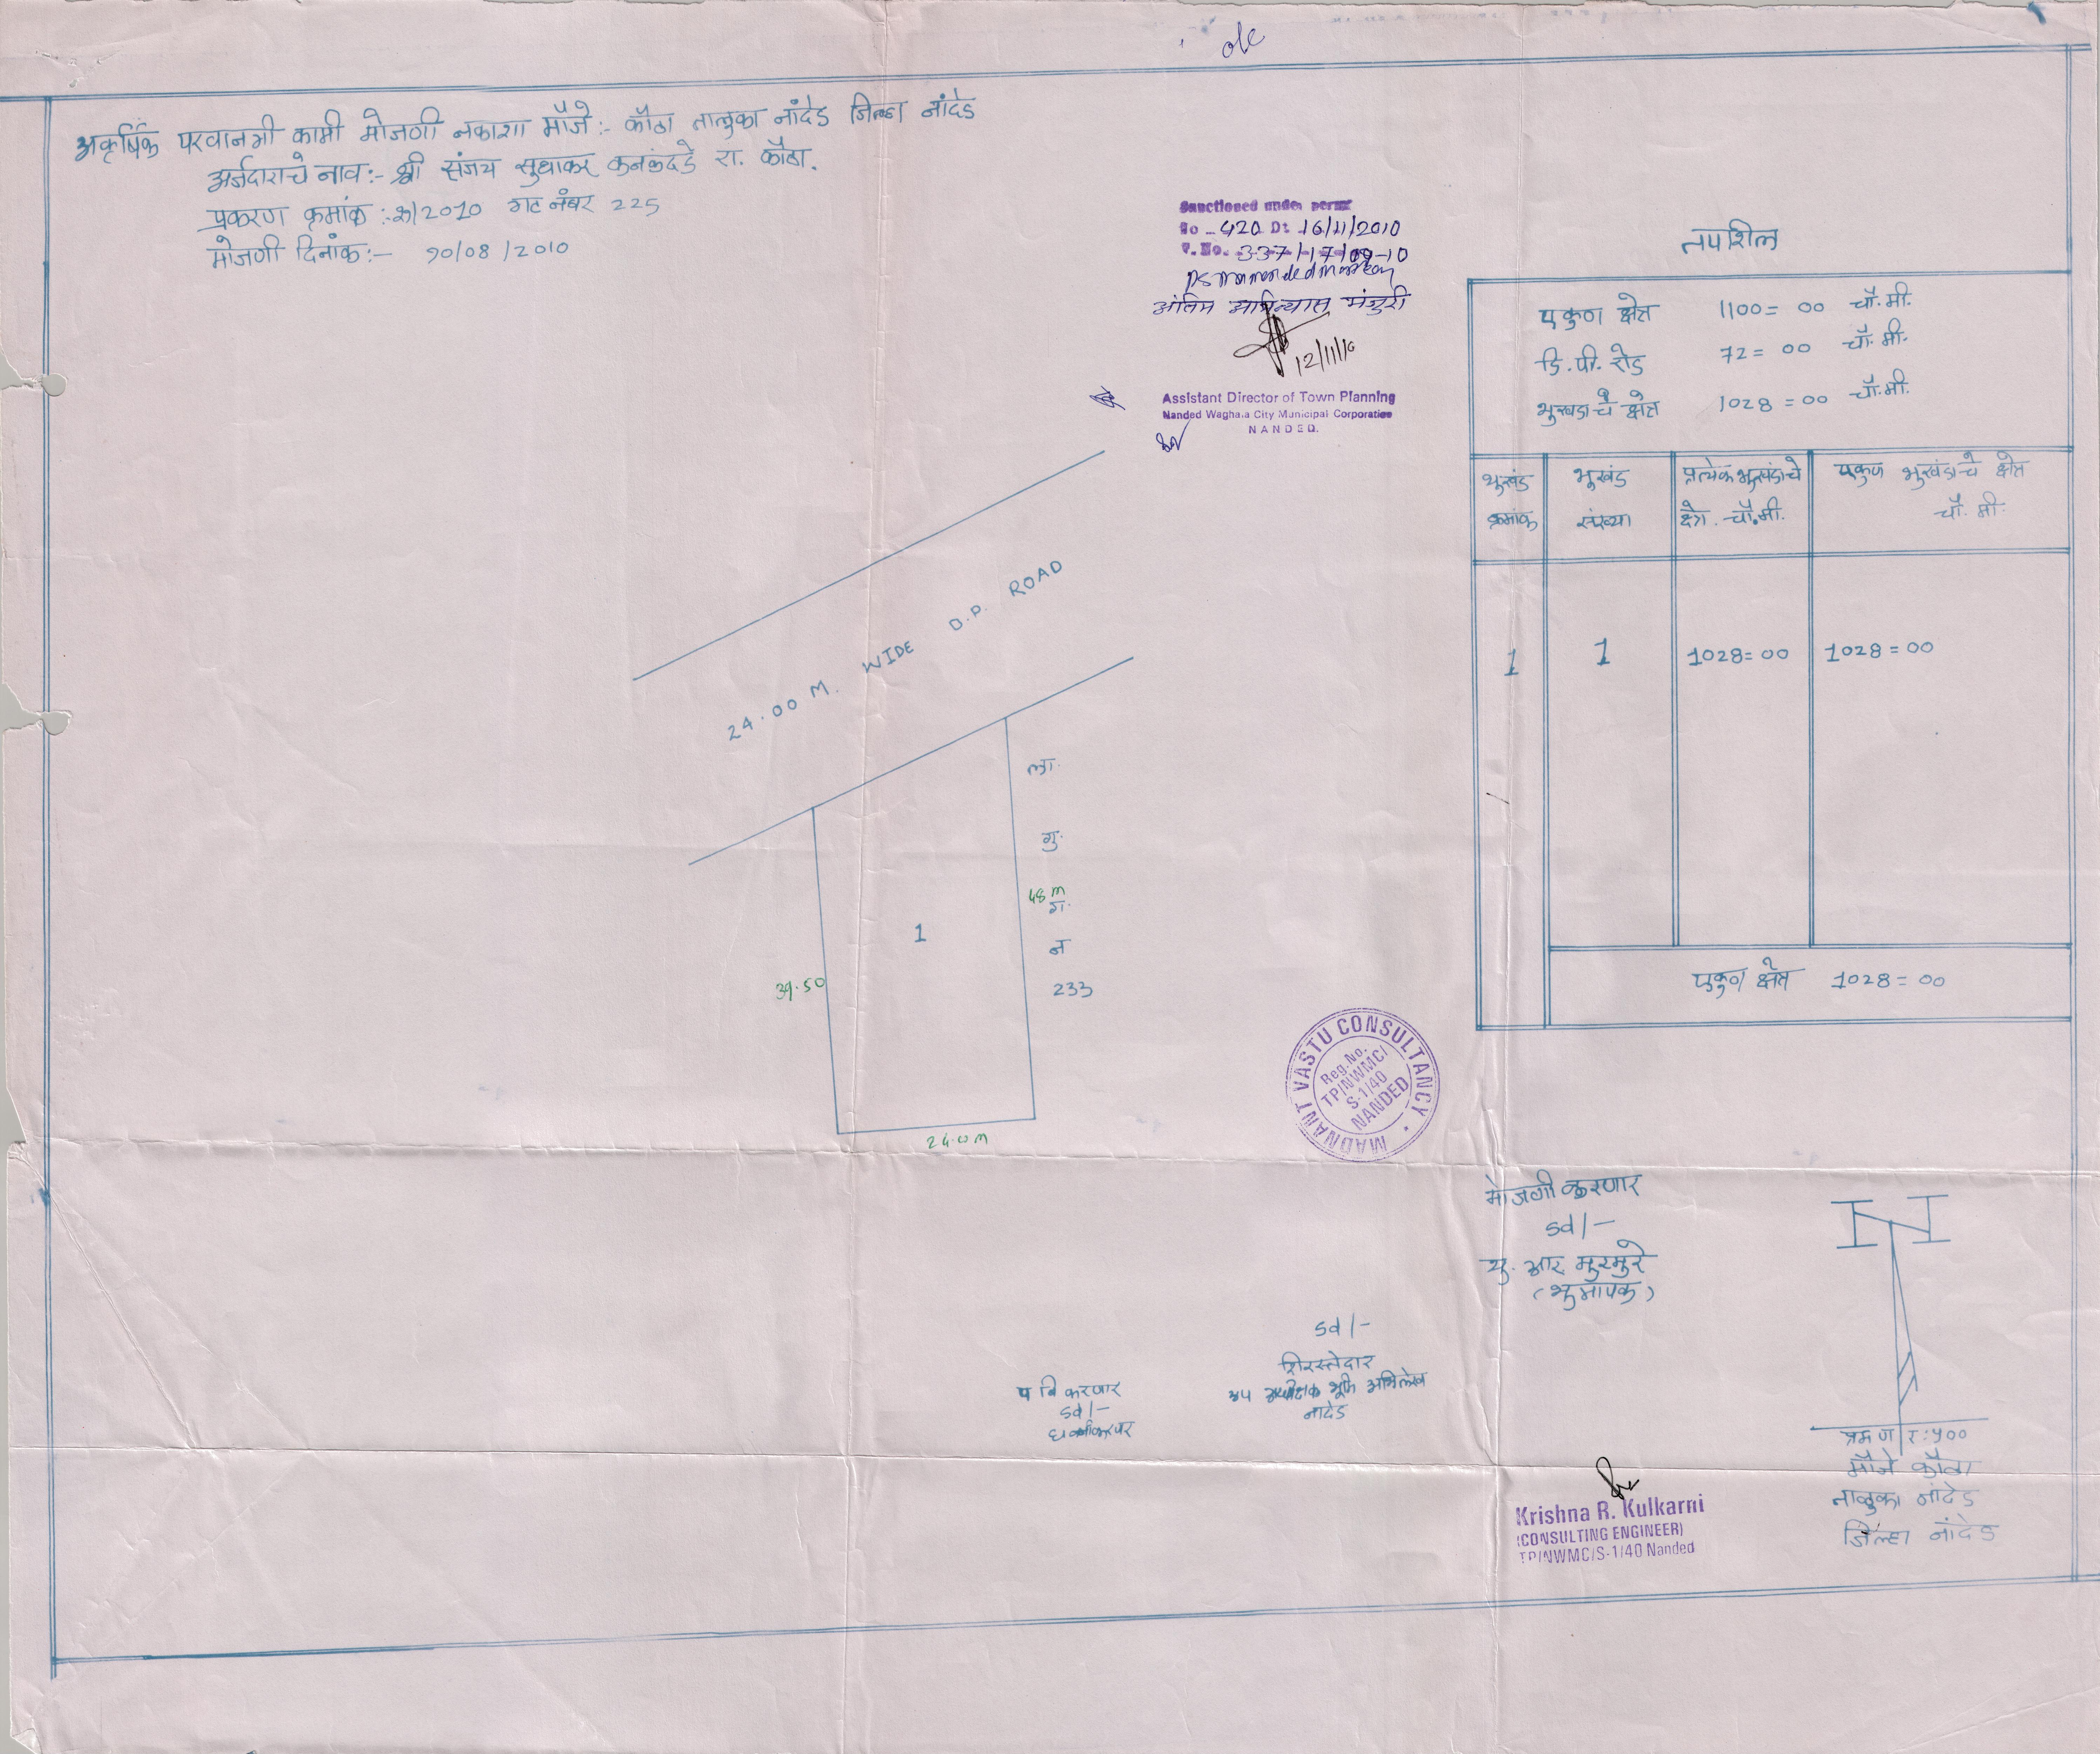 o/c
अकृषिक परवानगी कामी मोजणी नकाशा मौजे :- कौठा तालुका नांदेड जिल्हा नांदेड
अर्जदाराचे नाव :- श्री संजय सुधाकर रा. कौठा.
प्रकरण क्रमांक :- /2010 गट नंबर 225
मोजणी दिनांक :- 10/08/2010
Sanctioned under permit
No - 420 Dt 16/11/2010
F. No. 337/17/09-10
अंतिम अभिन्यास मंजुरी
12/11/10
Assistant Director of Town Planning
Nanded Waghala City Municipal Corporation
NANDED.
तपशिल
एकुण क्षेत्र 1100 = 00 चौ.मी.
डि.पी. रोड 72 = 00 चौ.मी.
भुखंडाचे क्षेत्र 1028 = 00 चौ.मी.
भुखंड क्रमांक
भुखंड संख्या
प्रत्येक भुखंडाचे क्षेत्र. चौ.मी.
एकुण भुखंडाचे क्षेत्र चौ. मी.
1 1 1028 = 00 1028 = 00
एकुण क्षेत्र 1028 = 00
24.00 M. WIDE D.P. ROAD
ला.
गु.
48 m
ग.
न
233
1
39.50
24.0 m
MADNANT VASTU CONSULTANCY
Reg. No.
TP/NWMC/
S-1/40
NANDED
मोजणी करणार
sd/-
यु. आर. मुरमुरे
(भुमापक)
sd/-
शिरस्तेदार
उप अधीक्षक भूमि अभिलेख
नांदेड
sd/-
प्रमाण १:५००
मौजे कौठा
तालुका नांदेड
जिल्हा नांदेड
Krishna R. Kulkarni
(CONSULTING ENGINEER)
TP/NWMC/S-1/40 Nanded